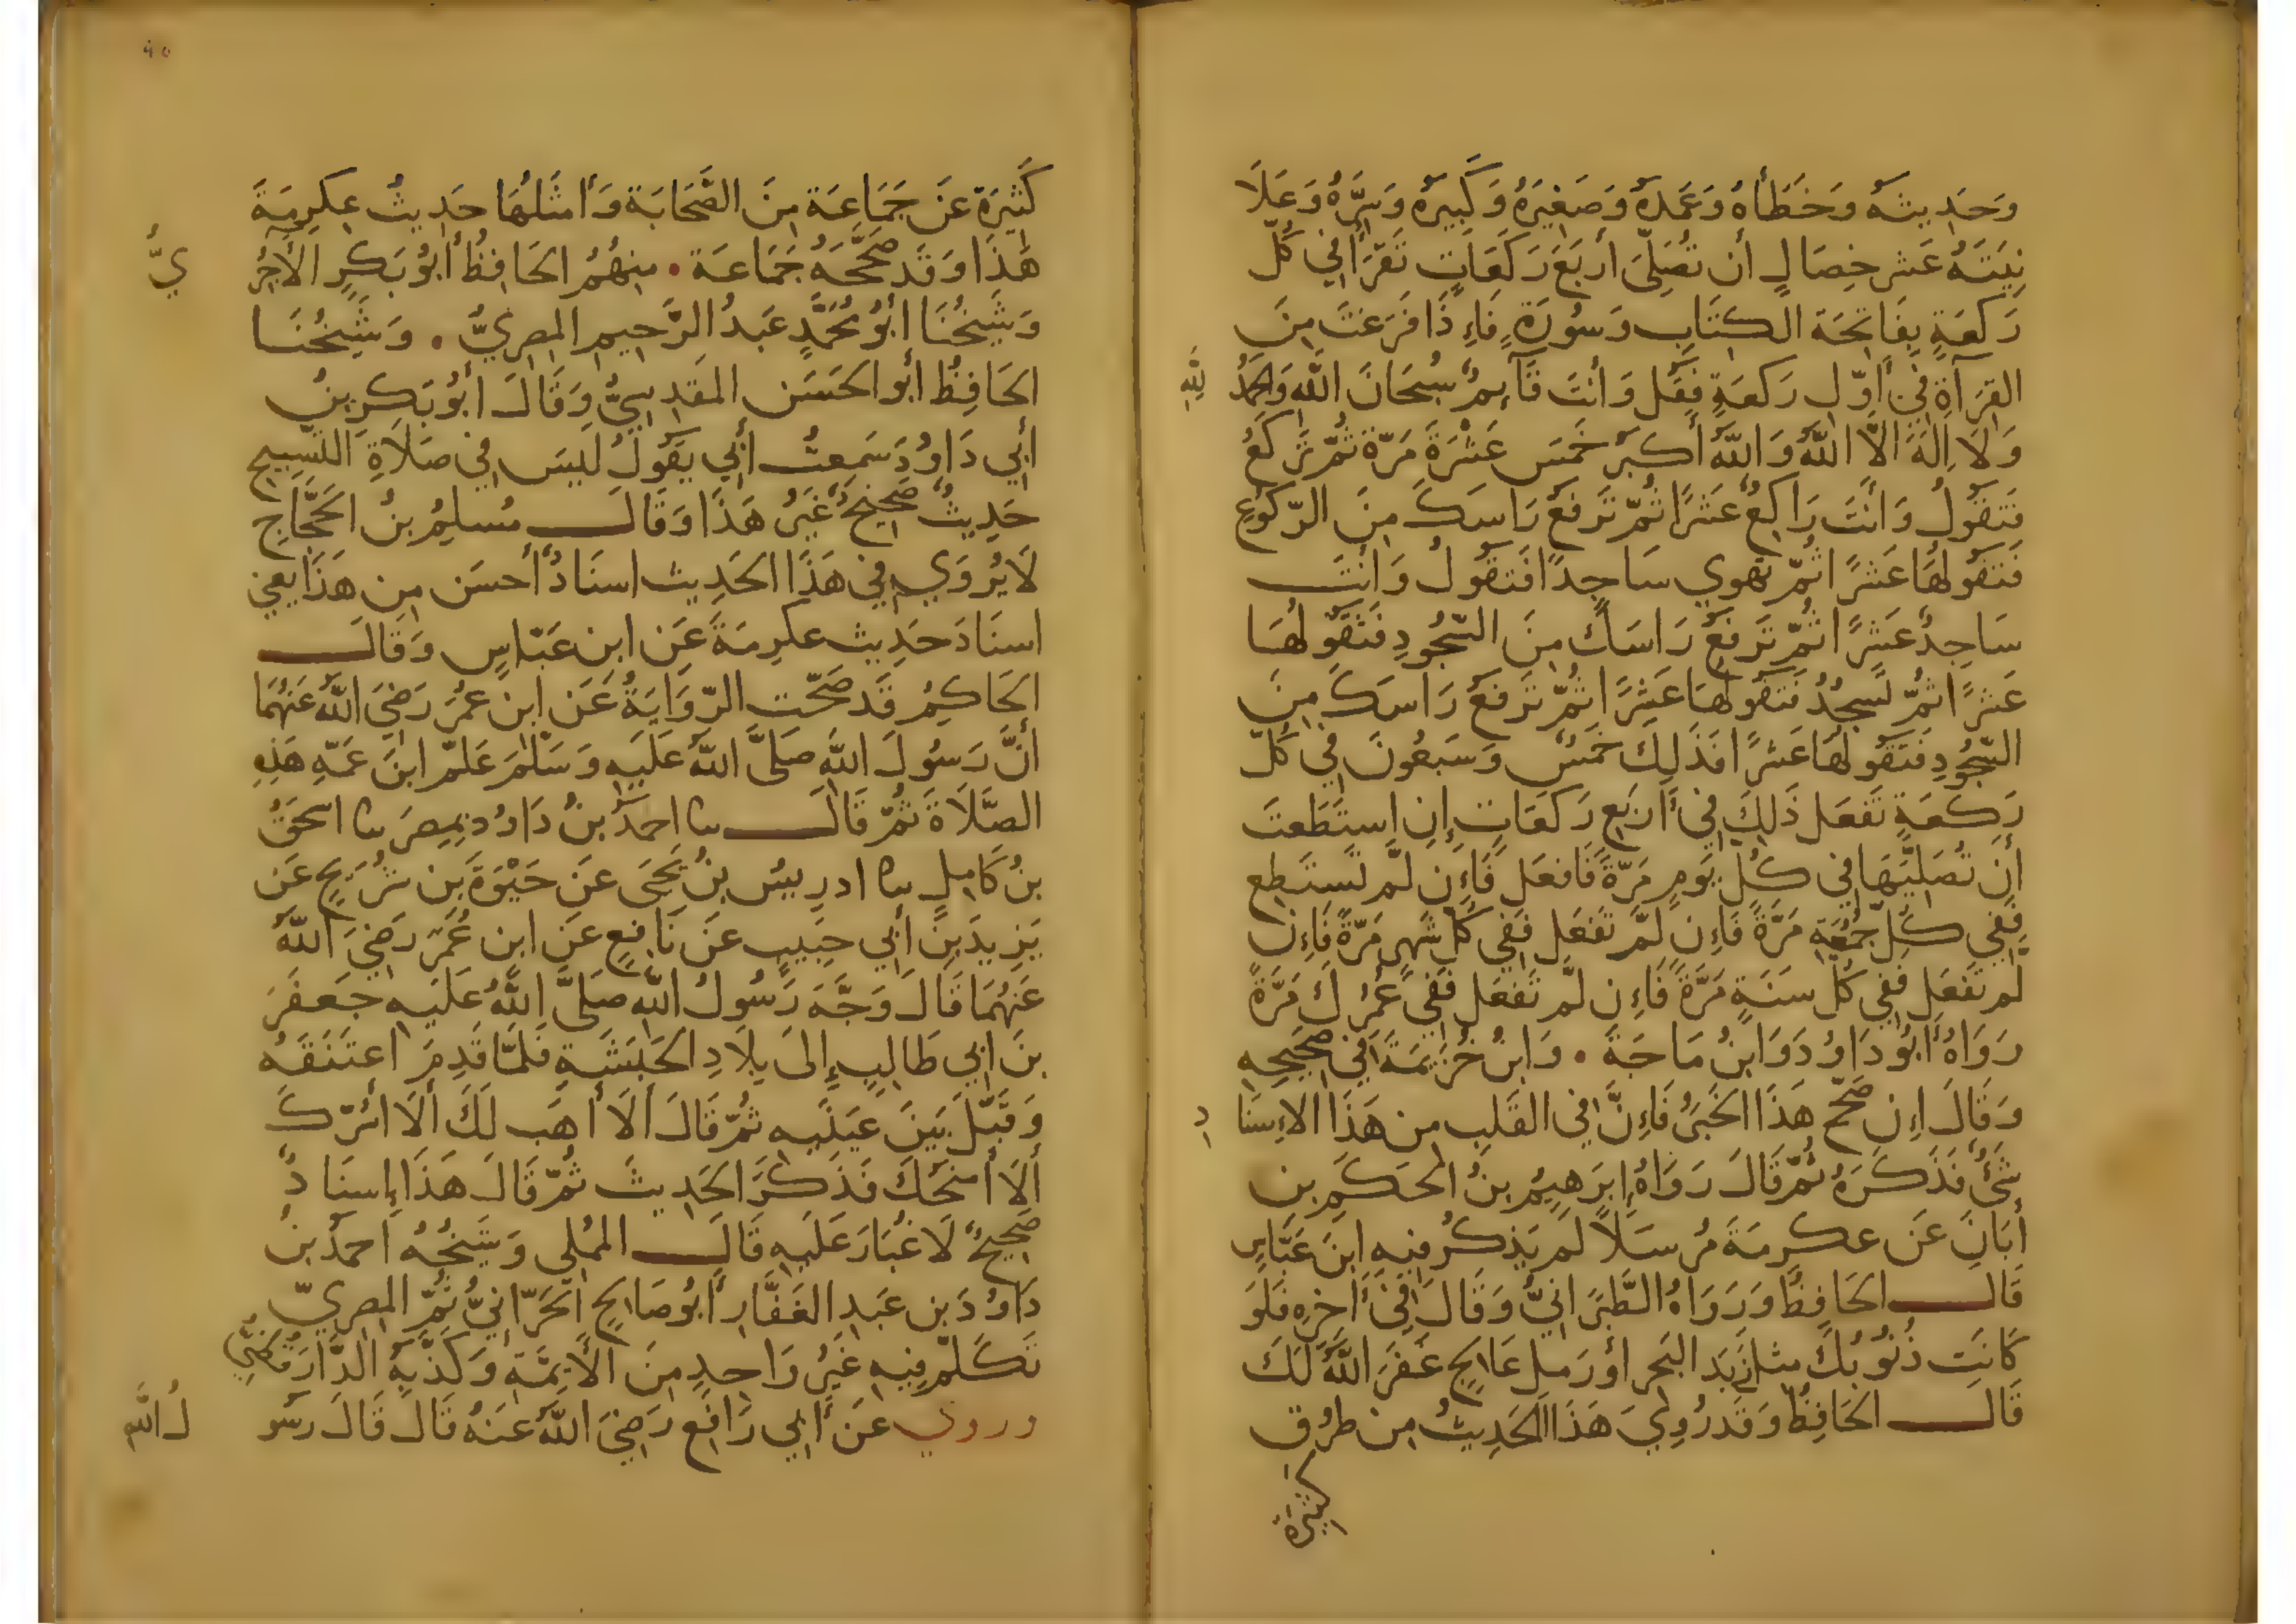 وَحَدِيثَهُ وَخَطَأَهُ وَعَمْدَهُ وَصَغِيرَهُ وَكَبِيرَهُ وَسِرَّهُ وَعَلَا
نِيَتَهُ عَشر خِصَالٍ أن تُصَلِّىَ أربَعَ رَكَعَاتٍ تَقرَأ في كُلِّ
رَكعَةٍ بِفَاتِحَة الكِتَابِ وَسُورَةٍ فَإِذَا فَرَغتَ مِنَ
القِرَآةِ في أوّلِ رَكعَةٍ فَقُل وَأنتَ قَآئِمٌ سُبحَانَ اللّٰهِ وَالحَمدُ لِلّٰهِ
وَلَا إِلَهَ الَّا اللّٰهُ وَاللّٰهُ أكبَرُ خَمسَ عَشْرَةَ مَرّةً ثُمَّ تَركَعُ
فَتَقُولُ وَأنتَ رَاكِعٌ عَشرًا ثُمَّ تَرفَعُ رَاسَكَ مِنَ الرّكُوعِ
فَتَقُولُهَا عَشرًا ثُمَّ تَهوِي سَاجِدًا فَتقُولُ وَأنتَ
سَاجِدٌ عَشرًا ثُمَّ تَرفَعُ رَاسَكَ مِنَ السّجُودِ فَتَقُولُهَا
عَشرًا ثُمَّ تَسجُدُ فَتَقُولُهَا عَشرًا ثُمَّ تَرفَعُ رَاسَكَ مِنَ
السّجُودِ فَتَقُولُهَا عَشرًا فَذَلِكَ خَمسٌ وَسَبعُونَ في كُلِّ
رَكعَةٍ تَفعَل ذَلِكَ في أربَعِ رَكَعَاتٍ إِنِ استَطَعتَ
أن تُصَلِّيَهَا في كُلِّ يَومٍ مَرّةً فَافعَل فَإِن لَّم تَستَطِع
فَفِي كُلِّ جُمُعَةٍ مَرَّةً فَإِن لَّم تَفعَل فَفِي كُلِّ شَهرٍ مَرّةً فَإِن
لَّم تَفعَل فَفِي كُلِّ سَنَةٍ مَرَّةً فَإِن لَّم تَفعَل فَفِي عُمُرِكَ مَرَّةً
رَوَاهُ أبُو دَاوُدَ وَابنُ مَاجَةَ • وَابنُ خُزَيمَةَ في صَحِيحِهِ
وَقَالَ إِن صَحَّ هَذَا الخَبَرُ فَإِنَّ في القَلبِ مِن هَذَا الاِسنَادِ
شَئٌ فَذَكَرَهُ ثُمَّ قَالَ رَوَاهُ إِبرَهِيمُ بنُ الحَكَمِ بنِ
أبَانَ عَن عكرِمَةَ مُرسَلًا لَم يَذكُر فِيهِ ابنَ عَبَّاسٍ
قَالَ الحَافِظُ وَرَوَاهُ الطَّبَرَانِيُّ وَقَالَ في أخرِهِ فَلَو
كَانَت ذُنُوبُكَ مِثل زَبَدِ البَحر أو رَملِ عَالِجٍ غَفَرَ اللّٰهُ لَكَ
قَالَ الحَافِظُ وَقَد رُوِيَ هَذَا الحَدِيثُ مِن طرُقٍ
كثِيرَةٍ
كَثِيرَةٍ عَن جَمَاعَة مِنَ الصَّحَابَة وَأمثَلُهَا حَدِيثُ عِكرِمَةَ
هَذَا وَقَد صَحَّحَهُ جَمَاعَة • مِنهُمُ الحَافِظُ أبُو بَكرٍ الآجُرِّيُّ
وَشَيخُنَا أبُو مُحَمَّدٍ عَبدُ الرَّحِيمِ المِصرِيُّ • وَشَيخُنَا
الحَافِظُ أبو الحَسَن المَقدِسِيُّ وَقَالَ أبُو بَكرِ بنُ
أبِي دَاوُدَ سَمِعتُ أبِي يَقُولُ لَيسَ في صَلَاةِ التَّسبِيحِ
حَدِيثٌ صَحِيحٌ غَيرُ هَذَا وَقَالَ مُسلِمُ بنُ الحَجَّاجِ
لَا يُروَي في هَذَا الحَدِيث اسنَادٌ أحسَن مِن هَذَا يعني
اسنَادَ حَدِيث عكرِمَةَ عَن ابن عَبّاسٍ وَقَالَ
الحَاكِمُ قَد صَحّت الرّوَايَةُ عَن ابنِ عمُرَ رَضِيَ اللّٰهُ عَنهُمَا
أنَّ رَسُولَ اللّٰهِ صَلَّى اللّٰهُ عَلَيهِ وَسَلّمَ عَلّمَ ابنَ عَمّهِ هَذِهِ
الصَّلَاةَ ثُمَّ قَالَ ثنا احمَدُ بنُ دَاوُد بِمِصرَ ثنا اسحَقُ
بنُ كَامِلٍ ثنا ادرِيسُ بنُ يَحيَى عَن حَيْوَةَ بن شُرَيحٍ عَن
يَزِيدَ بنِ أبِي حَبِيبٍ عَن نَافِعٍ عَن ابن عُمَرَ رَضِيَ اللّٰهُ
عَنهُمَا قَالَ وَجَّهَ رَسُولُ اللّٰهِ صَلَّى اللّٰهُ عَلَيهِ جَعفَرَ
بنَ ابِي طَالِبٍ إِلَى بِلَادِ الحَبَشَةِ فَلَمَّا قَدِمَ اعتَنَقَهُ
وَقَبَّلَ بَينَ عَينَيهِ ثُمَّ قَالَ ألَا أهَب لَكَ ألَا أسُرّكَ
ألَا أمنَحكَ فَذَكَرَ الحَدِيثَ ثُمَّ قَالَ هَذَا إِسنَادٌ
صَحِيحٌ لَا غُبَارَ عَلَيهِ قَالَ المُملِي وَشَيخُهُ احمَدُ بنُ
دَاوُدَ بن عَبدِ الغَفَّارِ أبُو صَالِحٍ الحَرّانِيُّ ثُمَّ المِصرِيّ
تَكَلّم فِيهِ غَيرُ وَاحِدٍ مِنَ الأَيِمَّة وَكَذَّبَهُ الدَّارَقُطنِيُّ
وروي عَن أبِي رَافِع رَضِيَ اللّٰهُ عَنهُ قَالَ قَالَ رَسُولُ اللّٰهِ